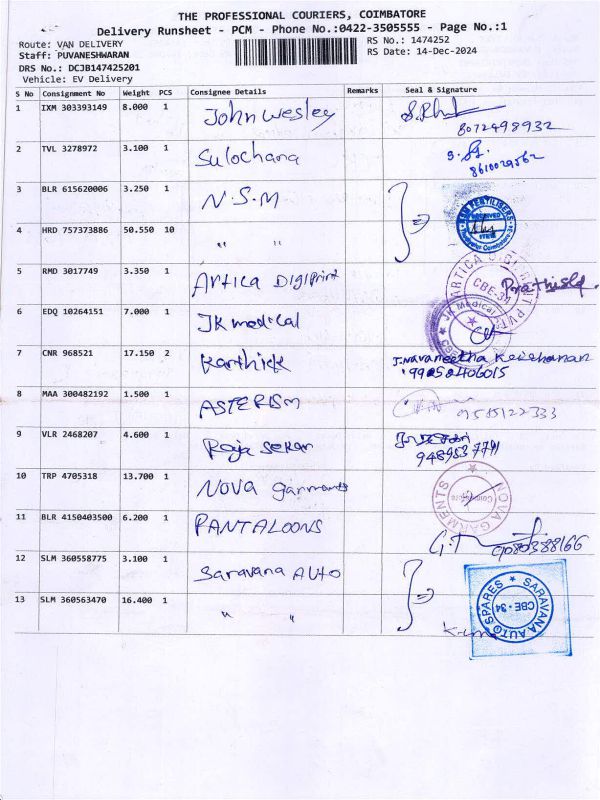 THE PROFESSIONAL COURIERS, COIMBATORE
Delivery Runsheet - PCM - Phone No.:0422-3505555 - Page No.:1
Route: VAN DELIVERY
RS No.: 1474252
Staff: PUVANESHWARAN
RS Date: 14-Dec-2024
DRS No.: DCJB147425201
Vehicle: EV Delivery
S No Consignment No Weight PCS Consignee Details Remarks Seal & Signature
1 IXM 303393149 8.000 1 John Wesley
8072498932
2 TVL 3278972 3.100 1 Sulochana
8610029562
3 BLR 615620006 3.250 1 N.S.M
NSM FERTILISERS
RECEIVED
4 HRD 757373886 50.550 10 " "
5 RMD 3017749 3.350 1 Artica Digiprint
ARTICA DIGIPRINT PVT
CBE-34
6 EDQ 10264151 7.000 1 JK medical
JK Medical
7 CNR 968521 17.150 2 Karthick
J.Navaneetha Krishanan
9952406015
8 MAA 300482192 1.500 1 ASTERISM
9585122333
9 VLR 2468207 4.600 1 Raja Sekar
9489537791
10 TRP 4705318 13.700 1 Nova garments
NOVA GARMENTS
Coimbatore
11 BLR 4150403500 6.200 1 PANTALOONS
9080388166
12 SLM 360558775 3.100 1 Saravana AUTO
SARAVANA AUTO SPARES
CBE-34
13 SLM 360563470 16.400 1 " "